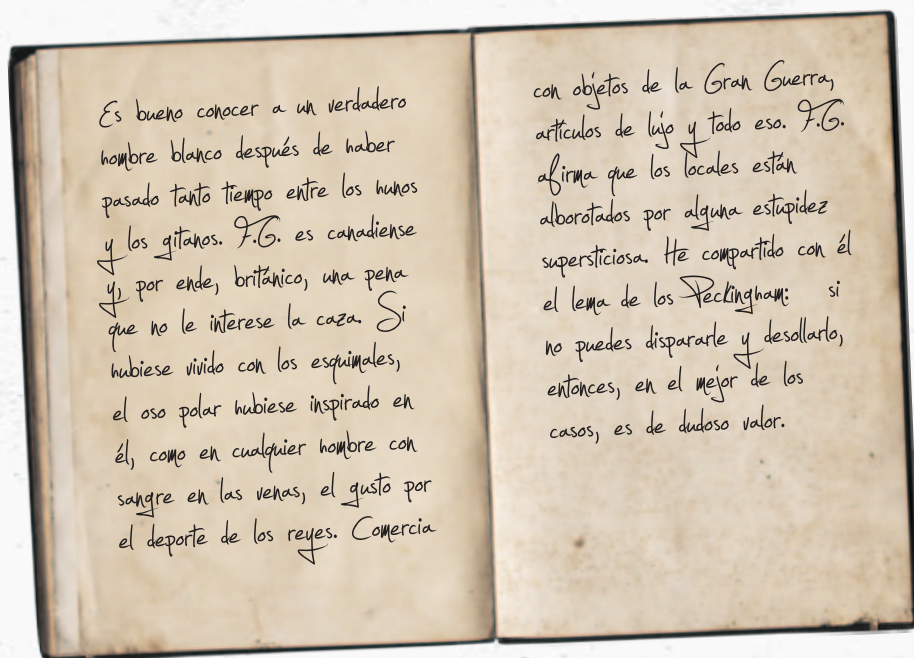 Es bueno conocer a un verdadero
hombre blanco después de haber
pasado tanto tiempo entre los hunos
y los gitanos. F.G. es canadiense
y, por ende, británico, una pena
que no le interese la caza. Si
hubiese vivido con los esquimales,
el oso polar hubiese inspirado en
él, como en cualquier hombre con
sangre en las venas, el gusto por
el deporte de los reyes. Comercia
con objetos de la Gran Guerra,
artículos de lujo y todo eso. F.G.
afirma que los locales están
alborotados por alguna estupidez
supersticiosa. He compartido con él
el lema de los Peckingham: si
no puedes dispararle y desollarlo,
entonces, en el mejor de los
casos, es de dudoso valor.